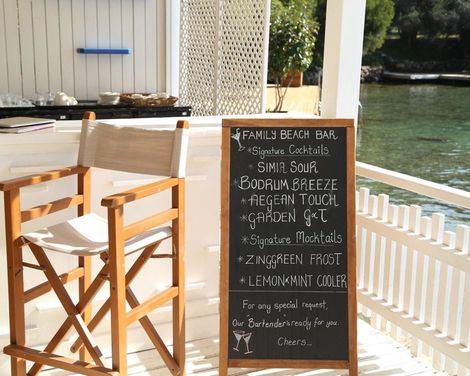 FAMILY BEACH BAR
*Signature Cocktails
*SIMIA SOUR
*BODRUM BREEZE
*AEGEAN TOUCH
*GARDEN G&T
*Signature Mocktails
*ZINGGREEN FROST
*LEMON&MINT COOLER
For any special request,
Our "Bartender" is ready for you.
Cheers...